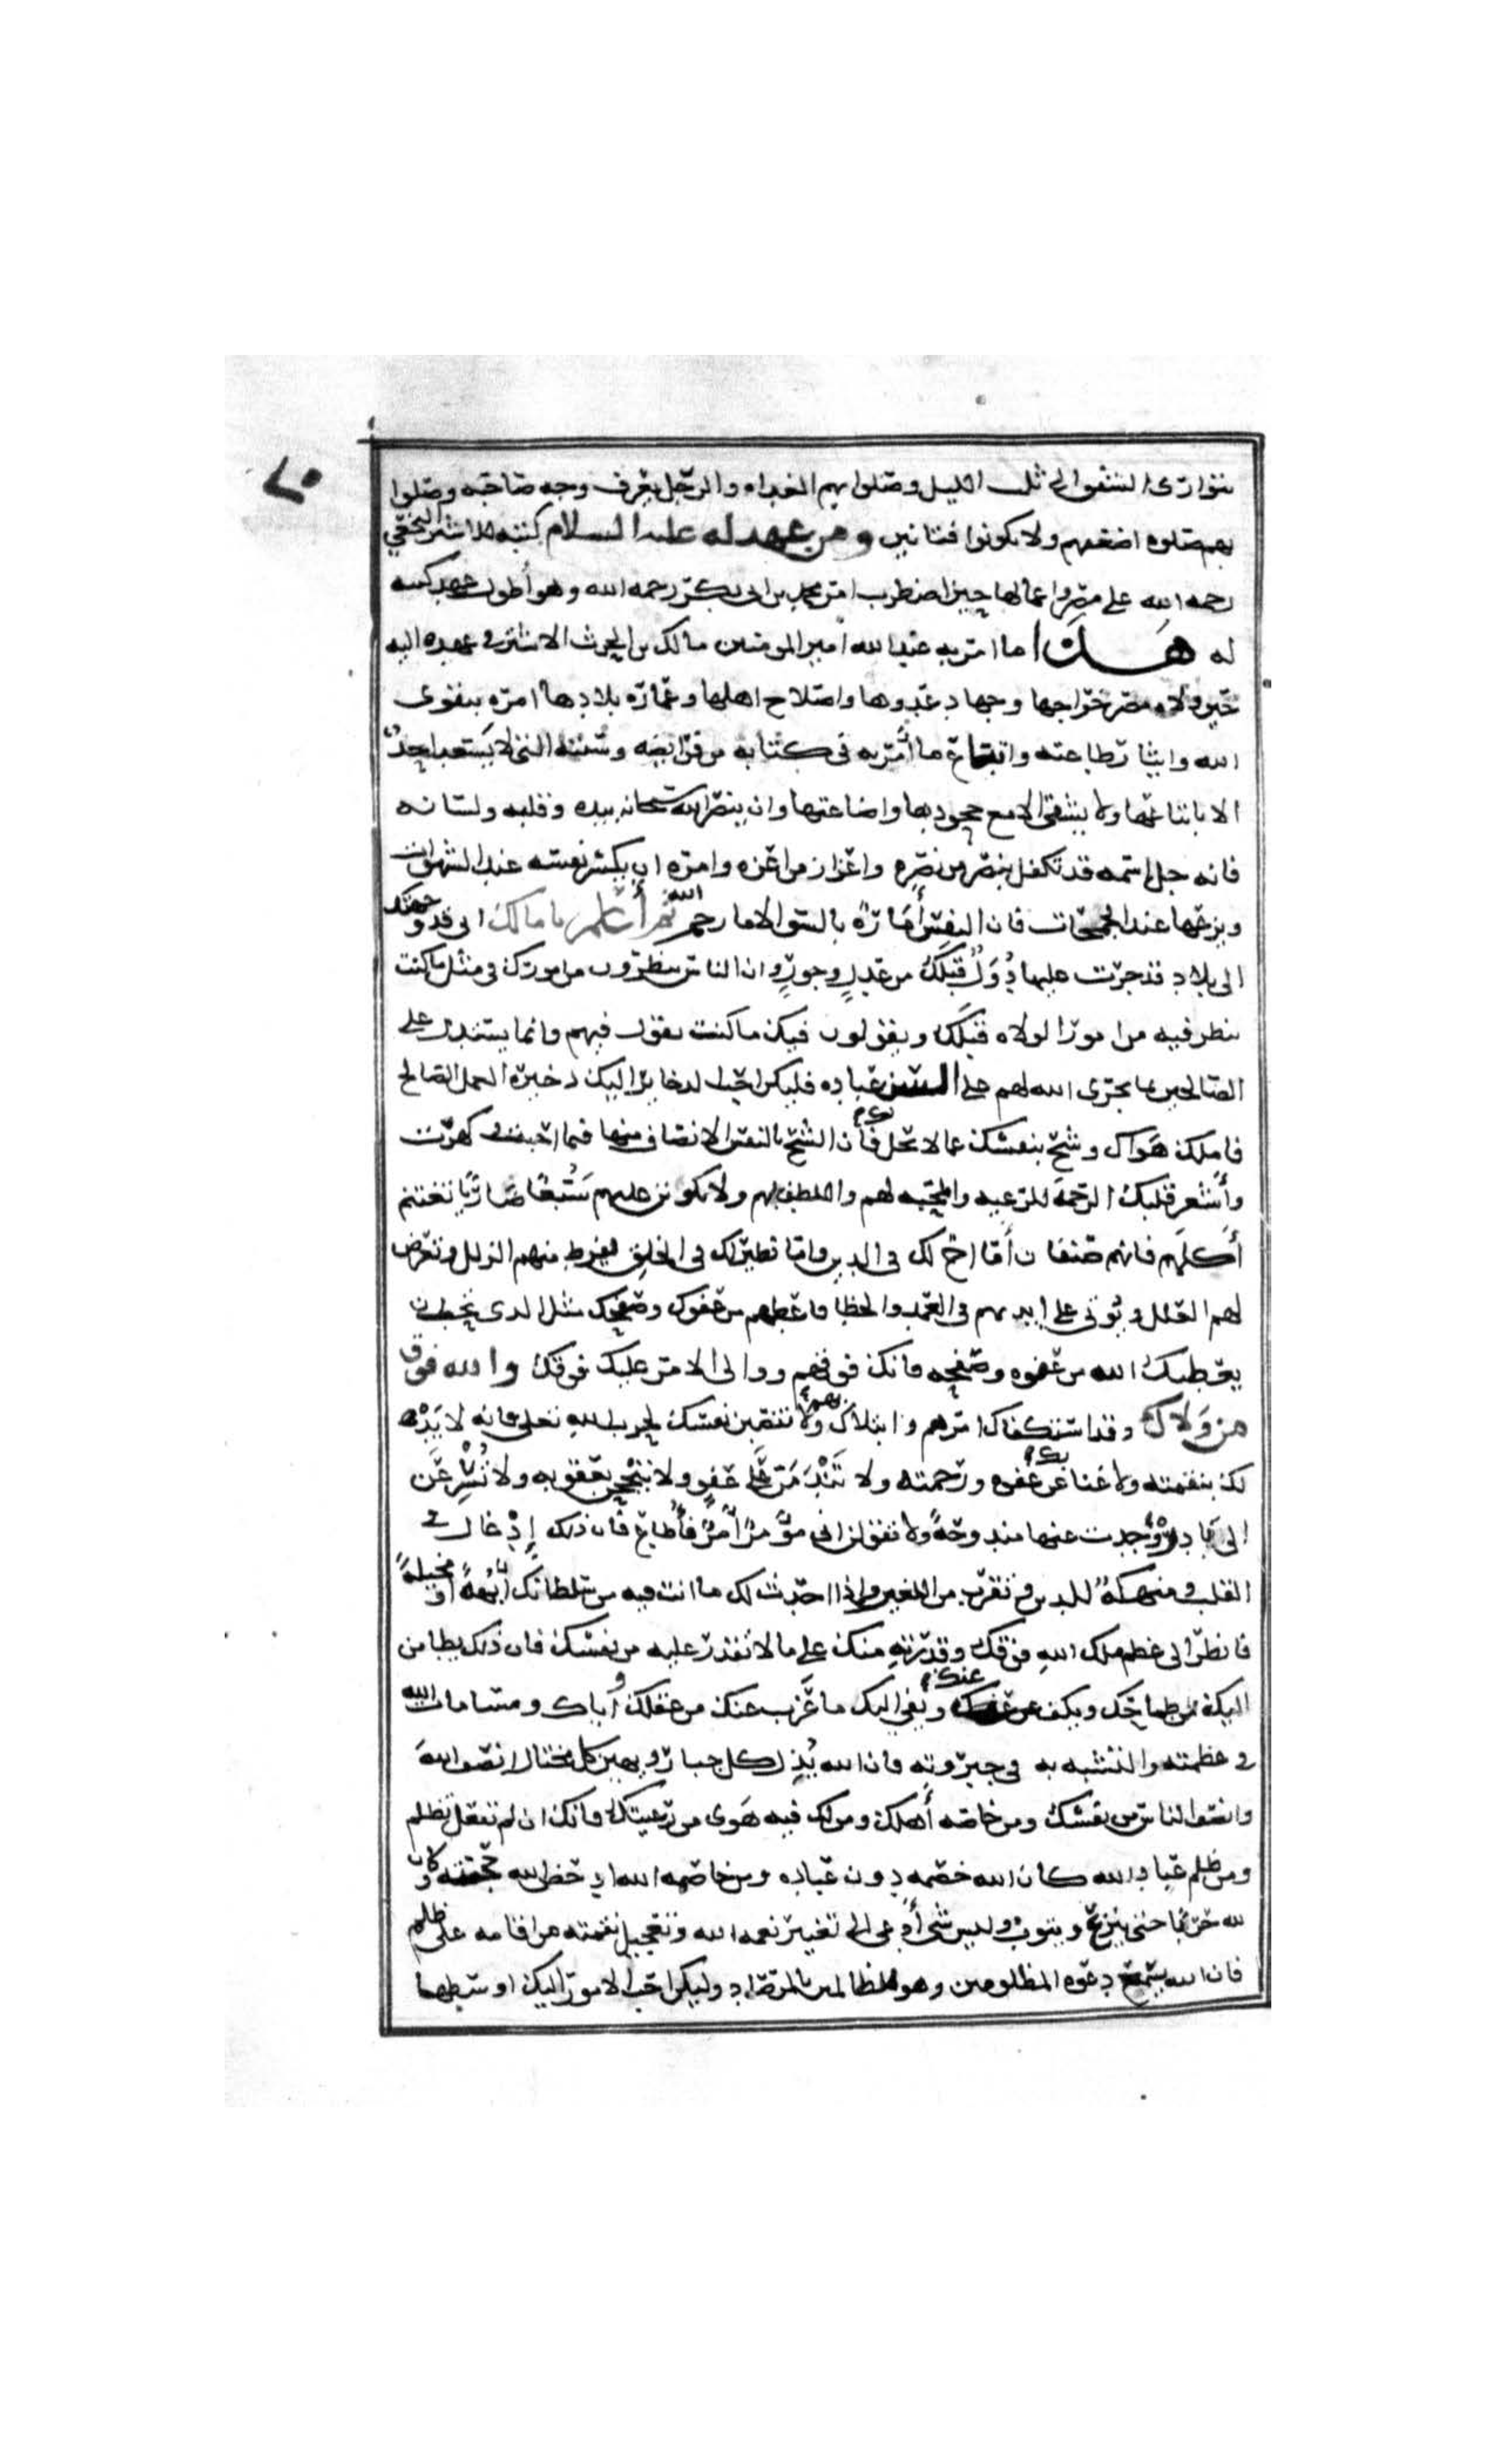 يتوارى الشفق الى ثلث الليل وصلوا بهم الغداه والرجل يعرف وجه صاحبه وصلوا
بهم صلوه اضعفهم ولا تكونوا فتانين ومن عهد له عليه السلام كتبه للاشتر النخعي
رحمه الله على مصر واعمالها حين اضطرب امر محمد بن ابى بكر رحمه الله وهو أطول عهد كتبه
له هذا ما امر به عبد الله امير المومنين مالك بن الحرث الاشتر فى عهده اليه
حين ولاه مصر خراجها وجهاد عدوها واصلاح اهلها وعمارة بلادها امره بتقوى
الله وايثار طاعته واتباع ما أمر به فى كتابه من فرايضه وسننه التى لا يسعد احد
الا باتباعها ولا يشقى الا مع جحودها واضاعتها وان ينصر الله سبحانه بيده وقلبه ولسانه
فانه جل اسمه قد تكفل بنصر من نصره واعزاز من اعزه وامره ان يكسر نفسه عند الشهوات
ويزعها عند الجمحات فان النفس أمارة بالسوء الا ما رحم الله ثم أعلم يا مالك انى قد وجهتك
الى بلاد قد جرت عليها دول قبلك من عدل وجور وان الناس ينظرون من امورك فى مثل ما كنت
تنظر فيه من امور الولاه قبلك ويقولون فيك ما كنت تقول فيهم وانما يستدل على
الصالحين بما يجرى الله لهم على السن عباده فليكن احب الذخاير اليك ذخيرة العمل الصالح
فاملك هواك وشح بنفسك عما لا يحل لك فان الشح بالنفس الانصاف منها فيما احبت وكرهت
وأشعر قلبك الرحمة للرعيه والمحبه لهم واللطف بهم ولا تكونن عليهم سبعا ضاريا تغتنم
أكلهم فانهم صنفان أما اخ لك فى الدين واما نظير لك فى الخلق يفرط منهم الزلل وتعرض
لهم العلل ويوتى على ايديهم فى العمد والخطا فاعطهم من عفوك وصفحك مثل الذى تحب ان
يعطيك الله من عفوه وصفحه فانك فوقهم ووالى الامر عليك فوقك والله فوق
من ولاك وقد استكفاك امرهم وابتلاك بهم ولا تنصبن نفسك لحرب الله تعلى فانه لا يدى
لك بنقمته ولا غنا بك عن عفوه ورحمته ولا تندمن على عفو ولا تبجحن بعقوبه ولا تسرعن
الى بادرة وجدت عنها مندوحة ولا تقولن انى مؤمر آمر فأطاع فان ذلك إدغال فى
القلب ومنهكة للدين وتقرب من الغير واذا احدث لك ما انت فيه من سلطانك أبهة او مخيلة
فانظر الى عظم ملك الله فوقك وقدرته منك على ما لا تقدر عليه من نفسك فان ذلك يطامن
اليك من طماحك ويكف عنك من غربك ويفى اليك ما عزب عنك من عقلك واياك ومساماة الله
فى عظمته والتشبه به فى جبروته فان الله يذل كل جبار ويهين كل مختال انصف الله
وانصف الناس من نفسك ومن خاصة أهلك ومن لك فيه هوى من رعيتك فانك ان لم تفعل تظلم
ومن ظلم عباد الله كان الله خصمه دون عباده ومن خاصمه الله ادحض الله حجته وكان
لله حربا حتى ينزع ويتوب وليس شى أدعى الى تغيير نعمة الله وتعجيل نقمته من اقامه على ظلم
فان الله يسمع دعوة المظلومين وهو للظالمين بالمرصاد وليكن احب الامور اليك اوسطها